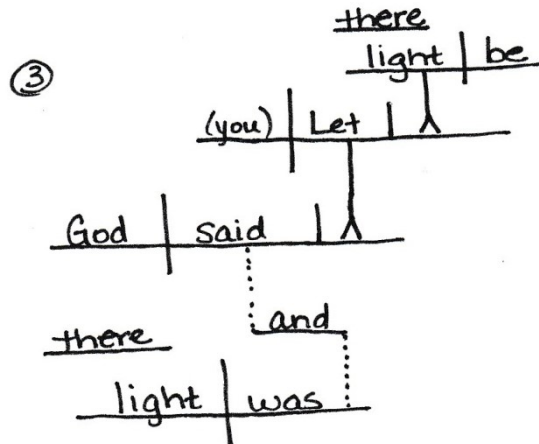 ③
there
light be
(you) Let
God said
and
there
light was